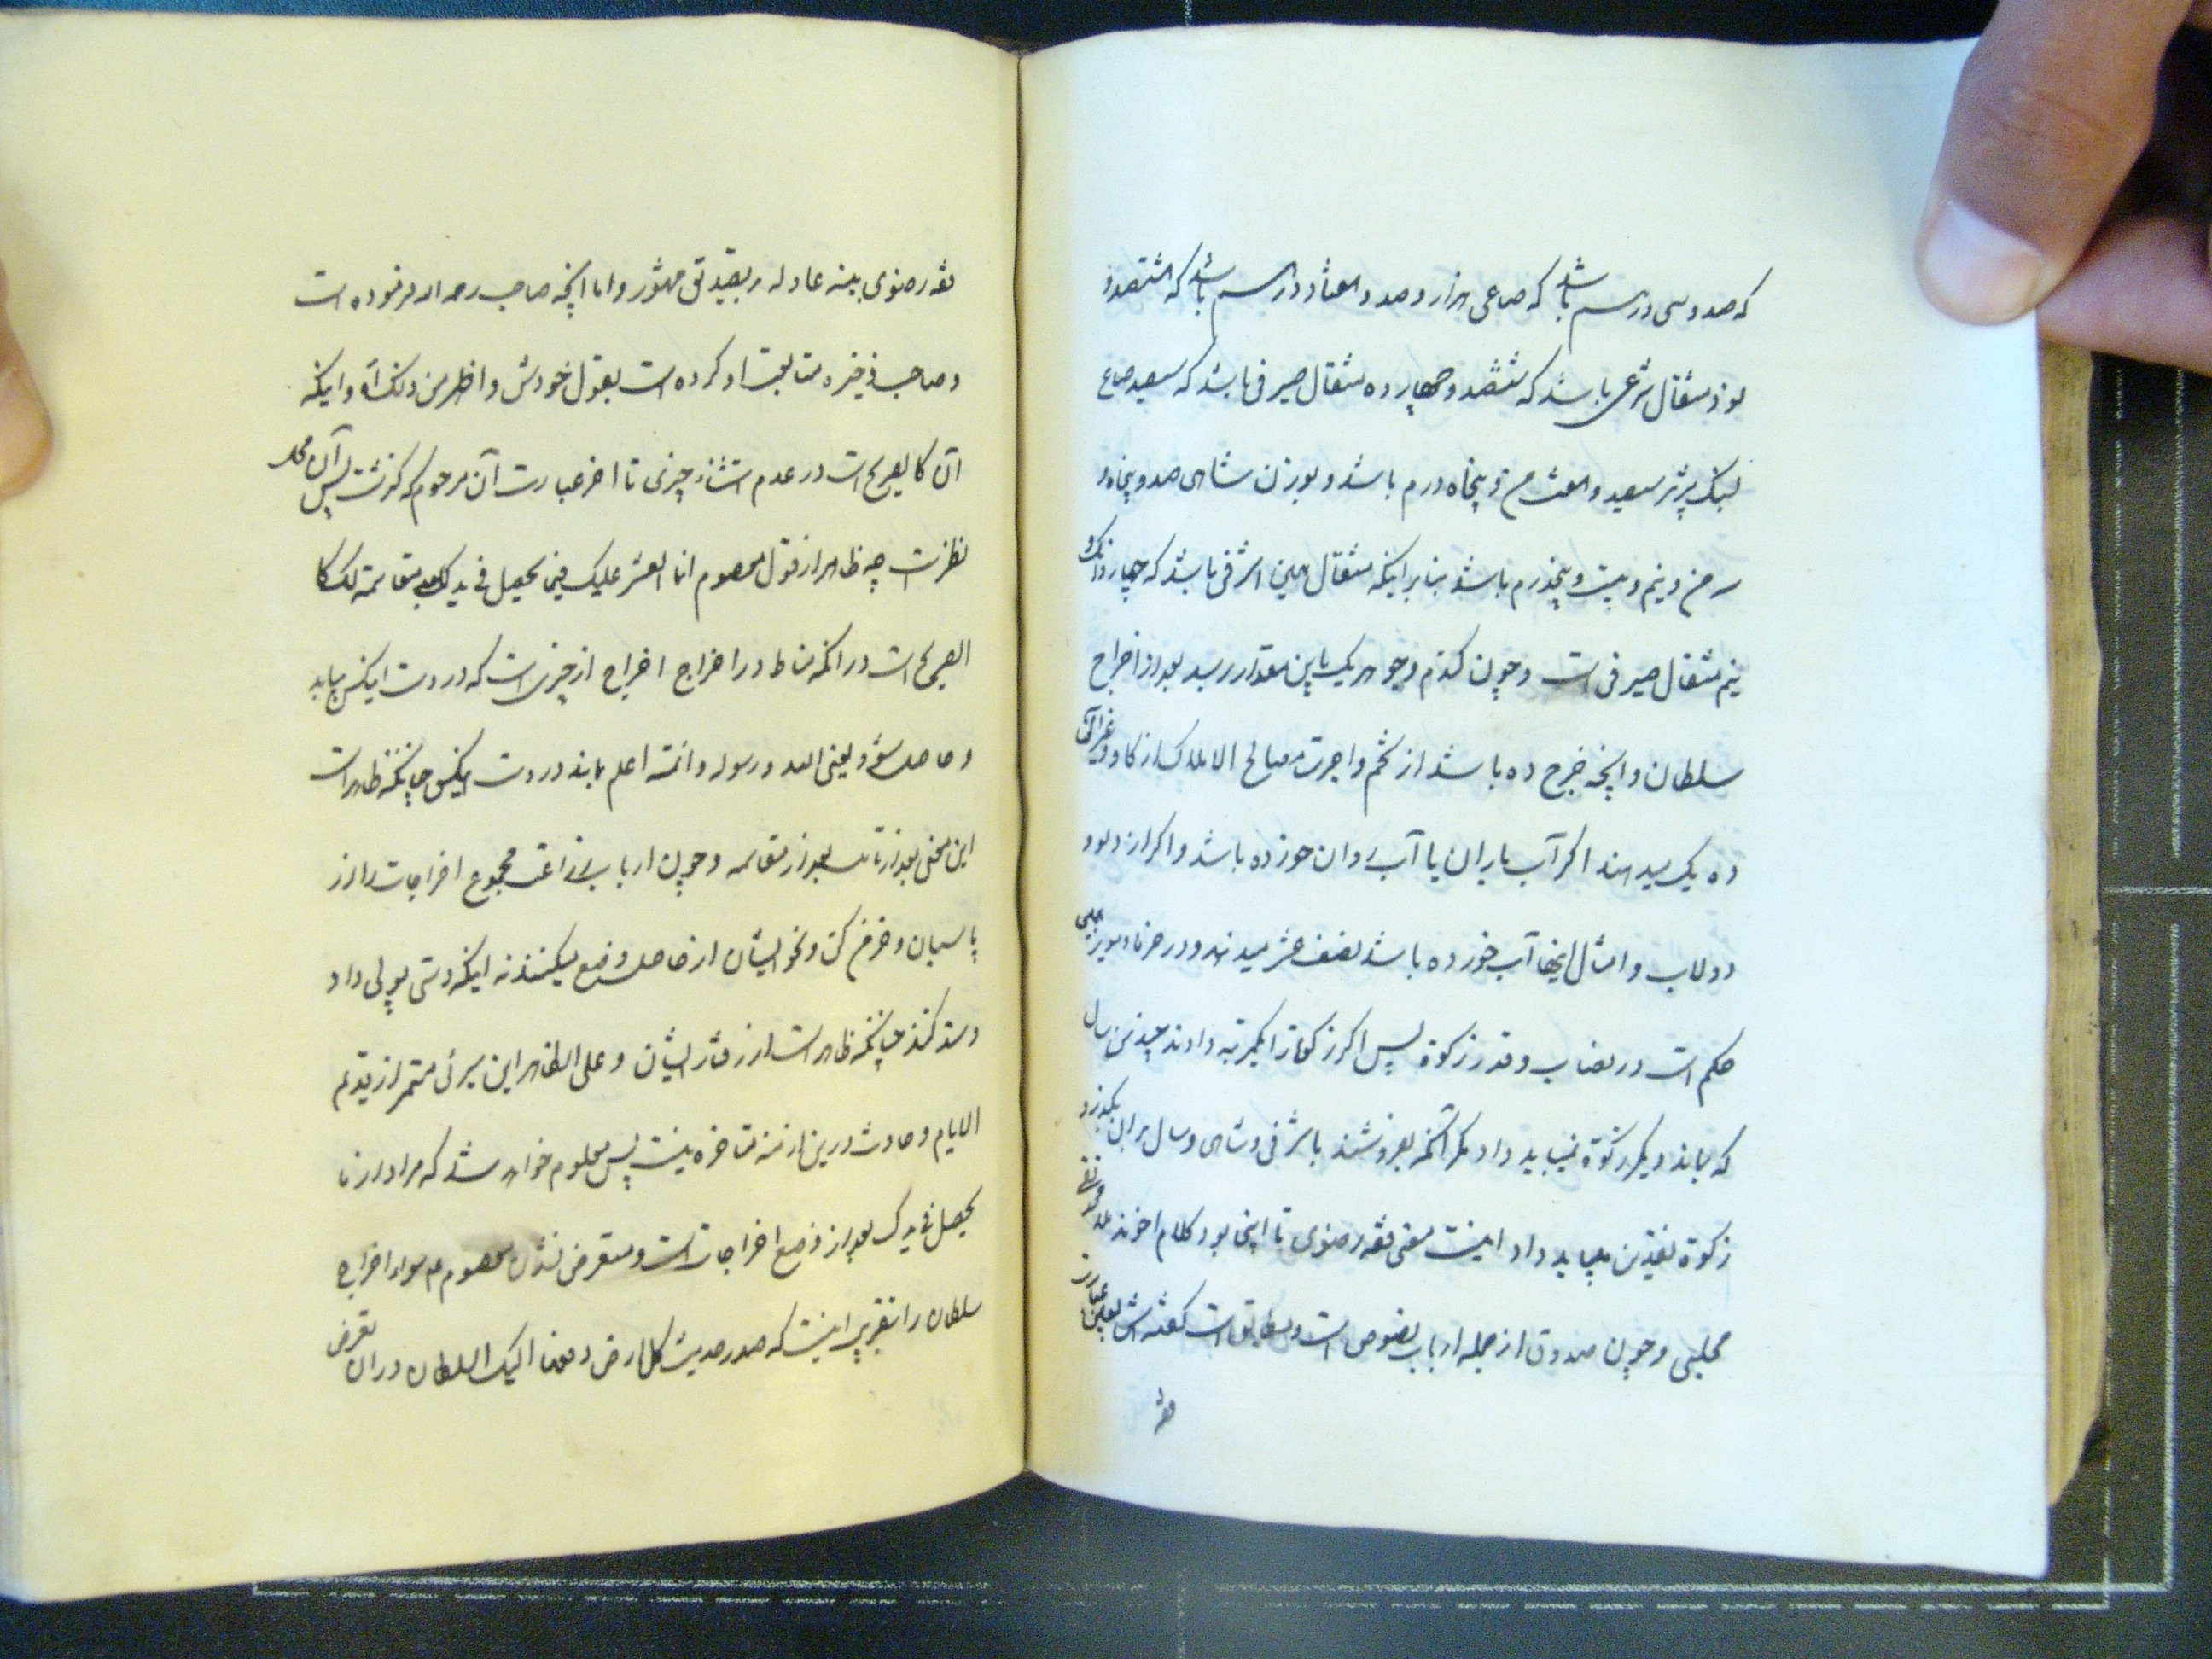 که صد و سی درسم باشد که صاعی هزار و صد و هفتاد درسم باشد که هشتصد و
نوزد مثقال شرعی باشد که ششصد و چهارده مثقال صیرفی باشد که سیصد صاع
بسنک تبریز سیصد و هفت من و پنجاه درم باشد و بوزن شاهی صد و پنجاه و
سه من و نیم و بیست و پنجدرم باشد بنابر اینکه مثقال همین اشرفی باشد که چهار دانک و
نیم مثقال صیرفی است و چون کندم و جو هر یک باین مقدار رسید بعد از اخراج
سلطان و آنچه خرج ده باشد از تخم و اجرت مصالح الاملاک از کاو و غیر آن
ده یک میدهند اکر آب باران یا آب روان خورده باشد و اکر از دلو و
دولاب و امثال اینها آب خورده باشد نصف عشر میدهند و در خرما و مویز همین
حکم است در نصاب و قدر زکوة پس اکر زکوة را یکمرتبه دادند چندین سال
که بماند دیکر زکوة نمیباید داد مکر آنکه بفروشند باشرفی و شاهی و سال بر آن بکذرد
زکوة نقدین میباید داد اینست معنی فقه رضوی تا اینجا بود کلام اخوند ملا محمد تقی
مجلسی و چون صدوق از جمله ارباب نصوص است و مطابق است کفته اش بعین عبارت
فقه
فقه رضوی بینه عادله بر تصدیق مشهور و اما آنچه صاحب رحمه الله فرموده است
و صاحب ذخیره متابعت او کرده است بقول خودش و اظهر من ذلک اه و اینکه
آن کالصریح است در عدم استثناء چیزی تا اخر عبارت آن مرحوم که کذشت پس آن محل
نظرست چه ظاهر از قول معصوم انما العشر علیک فیما یحصل فی یدک بعد مقاسمته لک کا
الصریح است در آنکه مناط در اخراج اخراج از چیزیست که در دست اینکس بیاید
و حاصل شود یعنی الله و رسوله و ائمته اعلم بماند در دست اینکس چنانکه ظاهر است
این معنی بعد از تامل بعد از مقاسمه و چون ارباب زراعت مجموع اخراجات را از
پاسبان و خرمن کن و نحو ایشان از حاصل وضع میکنند نه اینکه دستی پولی داد
و ستد کنند چنانچه ظاهر است از رفتار ایشان و علی الظاهر این سیرتی مستمر از قدیم
الایام و حادث درین ازمنه متاخره نیست پس معلوم خواهد شد که مراد از ما
یحصل فی یدک بعد از وضع اخراجات است و متعرض نشدن معصوم م سواء اخراج
سلطان را بتقریب اینست که صدر حدیث کل ارض دفعها الیک السلطان در آن تعرض